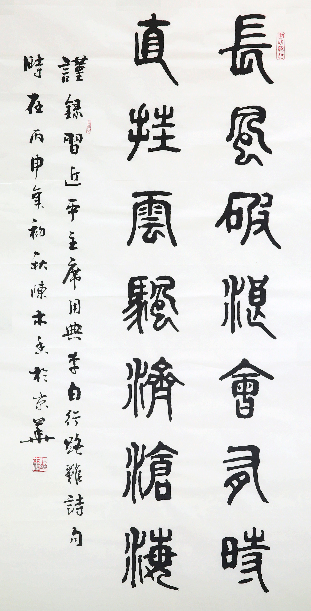 長風破浪會有時
直挂雲颿濟滄海
謹錄習近平主席用典李白行路難詩句
時在丙申年初秋陳木於京華